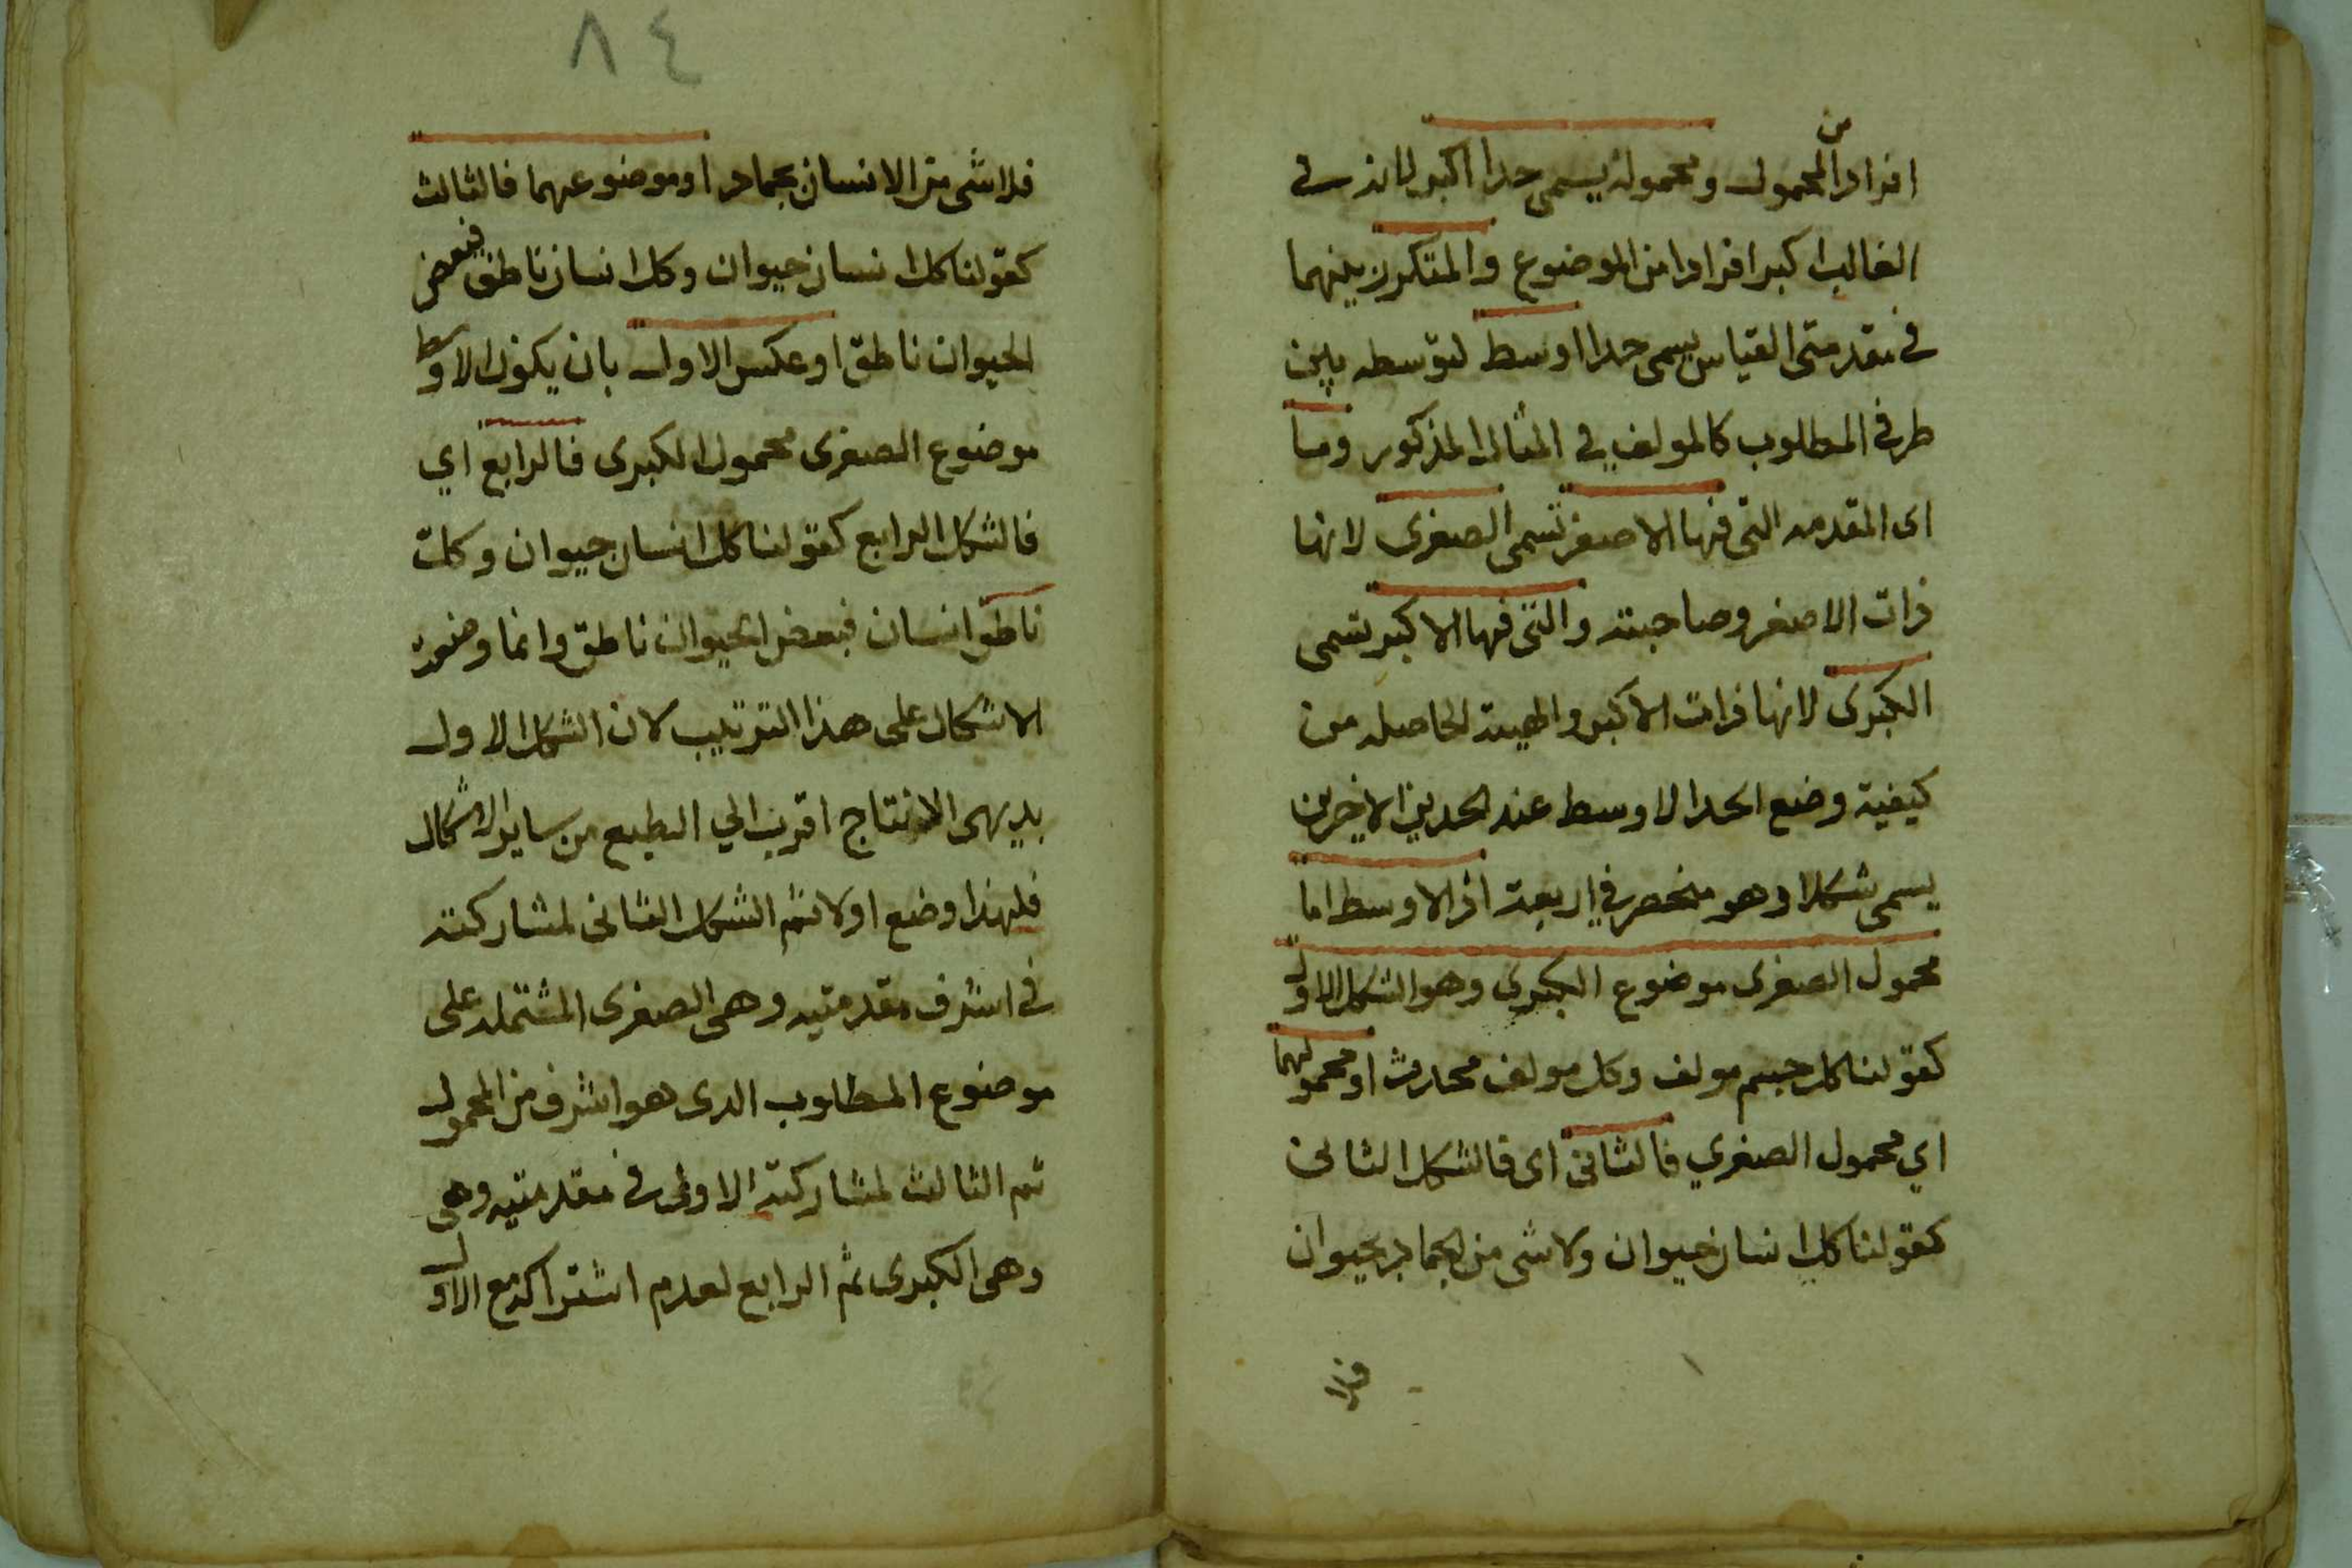 افرادا من المحمول ومحموله يسمى حدا اكبر لانه في
الغالب اكبر افرادا من الموضوع والمتكرر بينهما
في مقدمتى القياس يسمى حدا اوسط لتوسطه بين
طرفي المطلوب كالمولف في المثال المذكور وما
اى المقدمه التى فيها الاصغر تسمى الصغرى لانها
ذات الاصغر وصاحبته والتى فيها الاكبر تسمى
الكبرى لانها ذات الاكبر والهيئة الحاصله من
كيفية وضع الحد الاوسط عند الحدين الاخرين
يسمى شكلا وهو منحصر في اربعة اذ الاوسط اما
محمول الصغرى موضوع الكبرى وهو الشكل الاول
كقولنا كل جسم مولف وكل مولف محادث او محمولهما
اي محمول الصغري فالثانى اى فالشكل الثانى
كقولنا كل انسان حيوان ولا شى من الجماد بحيوان
فلا
٨٤
فلا شى من الانسان بجماد او موضوعهما فالثالث
كقولنا كل انسان حيوان وكل انسان ناطق فبعض
الحيوان ناطق او عكس الاول بان يكون الاوسط
موضوع الصغرى محمول الكبرى فالرابع اي
فالشكل الرابع كقولنا كل انسان حيوان وكل
ناطق انسان فبعض الحيوان ناطق وانما وضعت
الاشكال على هذا الترتيب لان الشكل الاول
بديهى الانتاج اقرب الي الطبع من ساير الاشكال
فلهذا وضع اولا ثم الشكل الثانى لمشاركته
في اشرف مقدمتيه وهى الصغرى المشتمله على
موضوع المطلوب الدى هو اشرف من المحمول
ثم الثالث لمشاركته الاولى في مقدمتيه وهى
وهى الكبرى ثم الرابع لعدم اشتراكه مع الاول